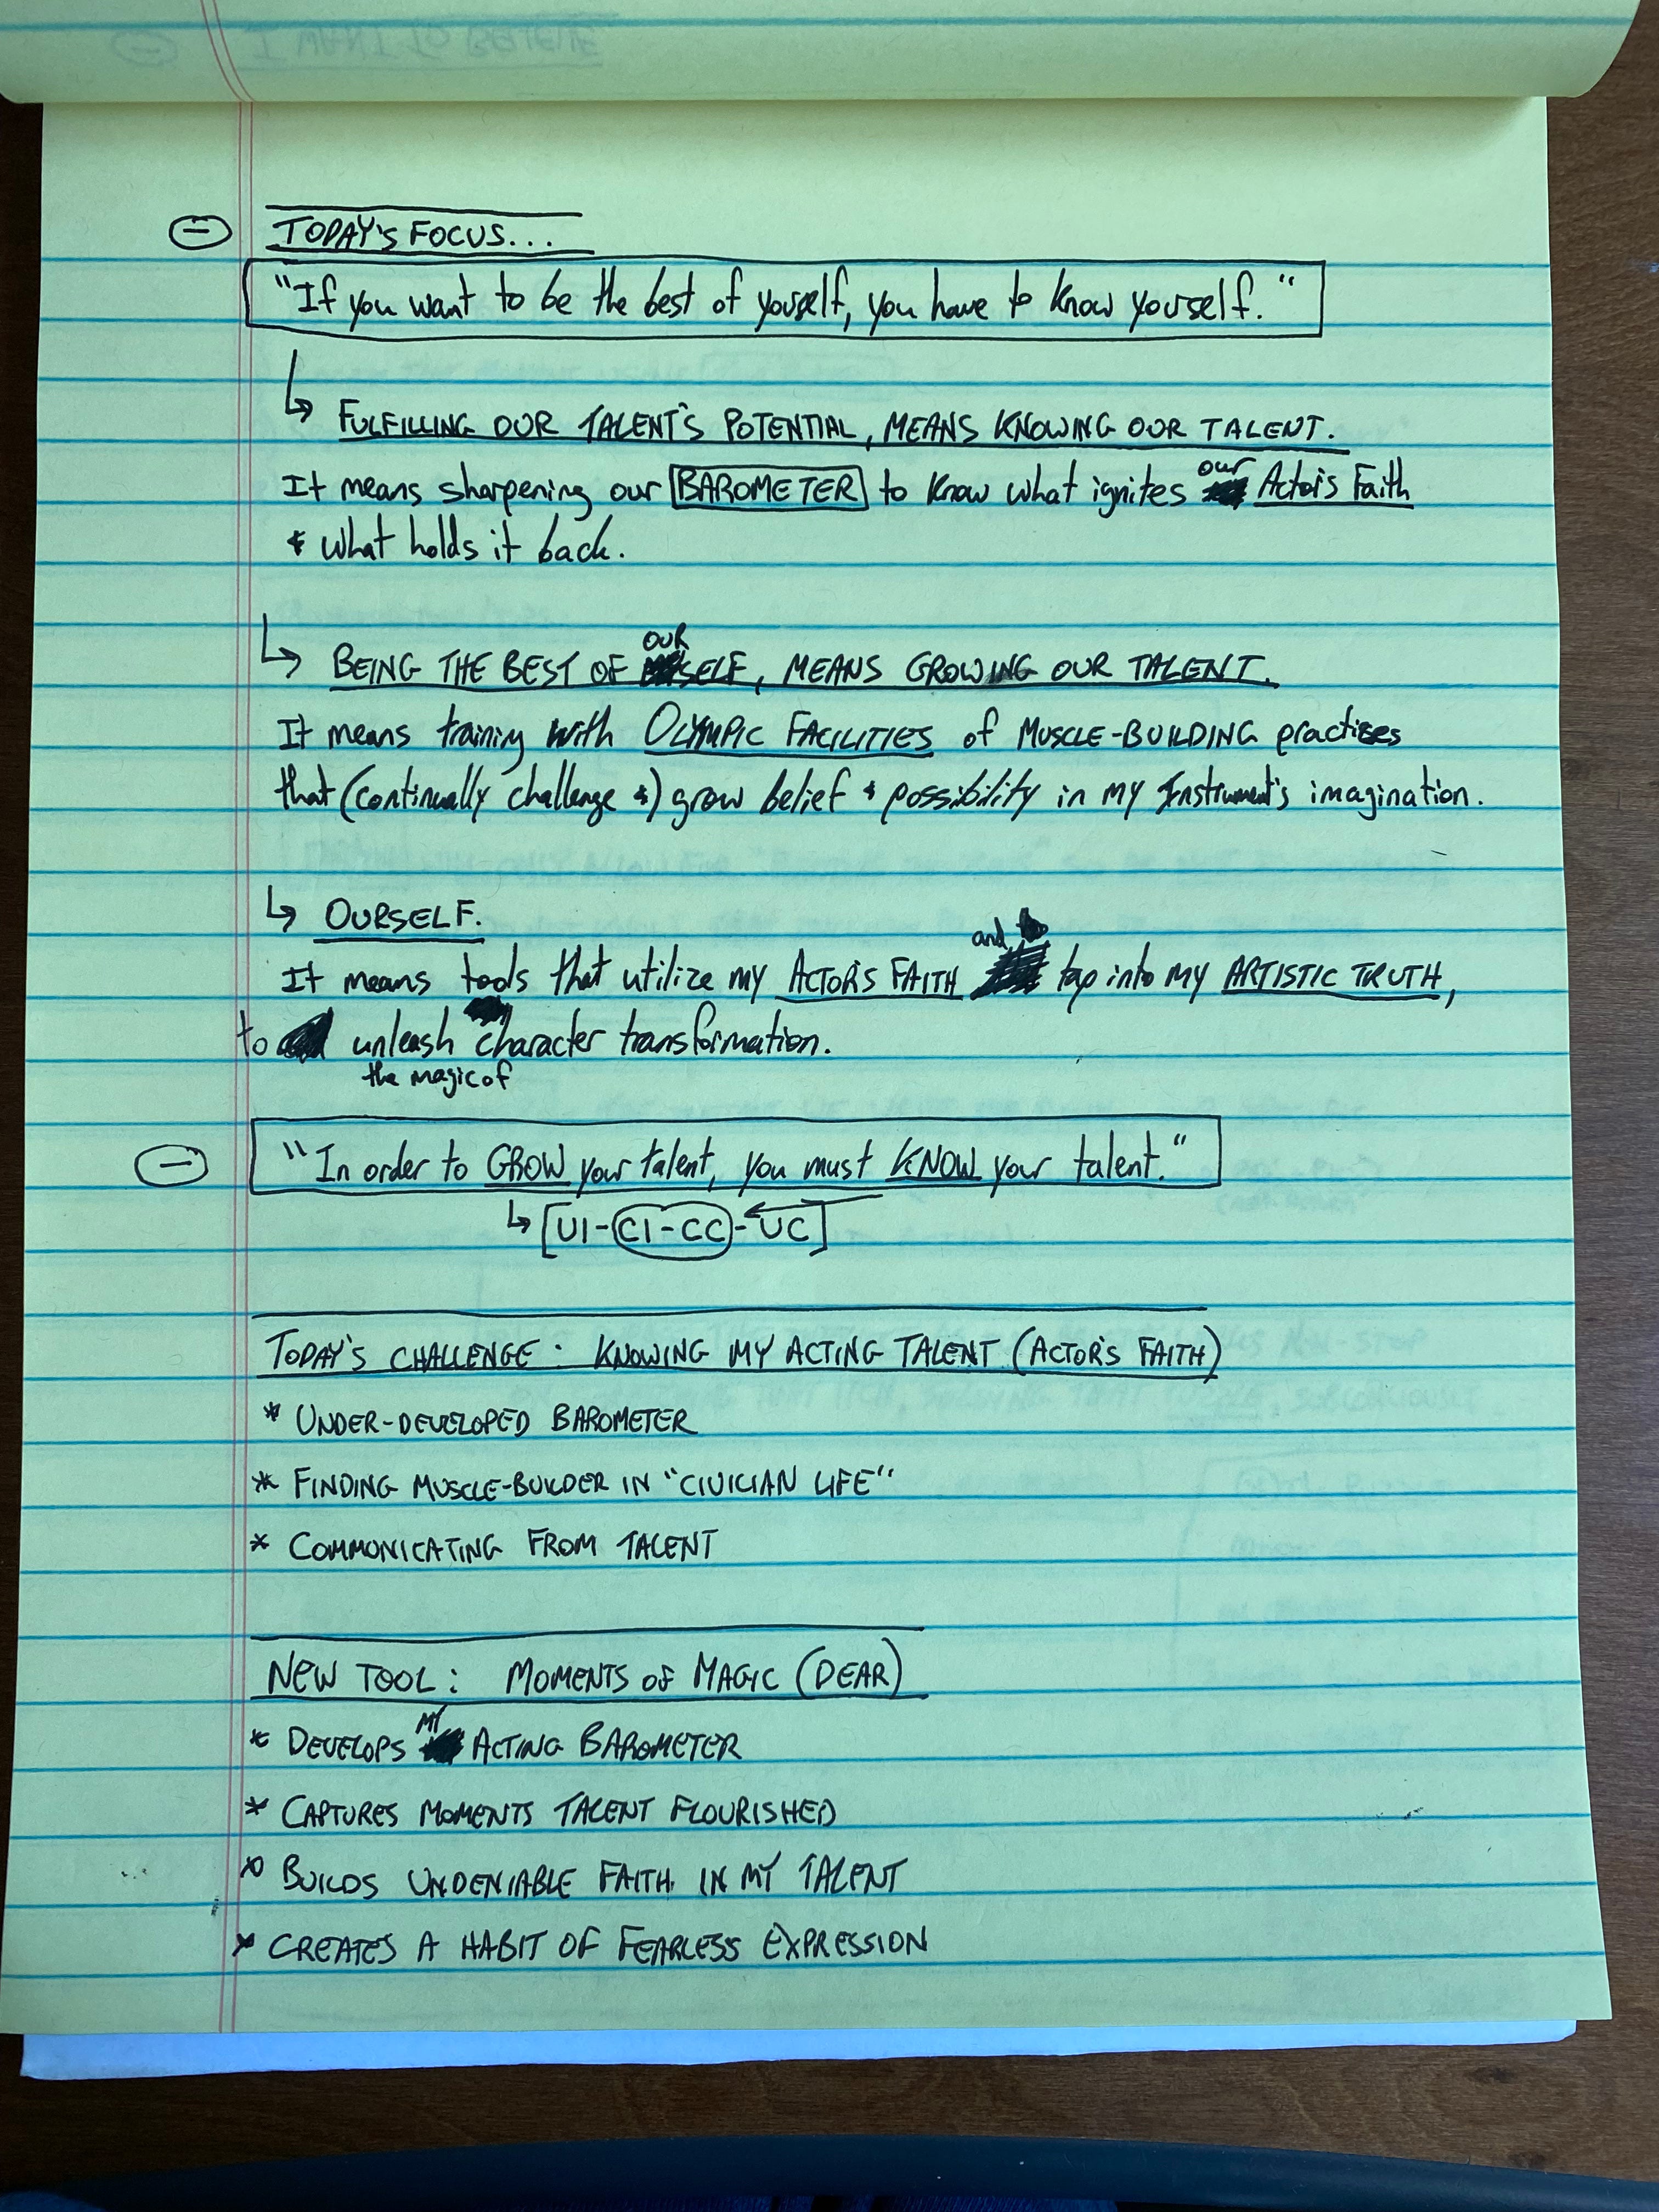 I WANT TO BELIEVE
TODAY'S FOCUS...
"If you want to be the best of yourself, you have to know yourself."
↳ FULFILLING OUR TALENT'S POTENTIAL, MEANS KNOWING OUR TALENT.
It means sharpening our BAROMETER to know what ignites our Actor's Faith
& what holds it back.
↳ BEING THE BEST OF OURSELF, MEANS GROWING OUR TALENT.
It means training with OLYMPIC FACILITIES of MUSCLE-BUILDING practices
that (continually challenge &) grow belief & possibility in my Instrument's imagination.
↳ OURSELF.
It means tools that utilize my ACTOR'S FAITH and tap into my ARTISTIC TRUTH,
to unleash the magic of character transformation.
"In order to GROW your talent, you must KNOW your talent."
↳ [UI-CI-CC-UC]
TODAY'S CHALLENGE: KNOWING MY ACTING TALENT (ACTOR'S FAITH)
* UNDER-DEVELOPED BAROMETER
* FINDING MUSCLE-BUILDER IN "CIVILIAN LIFE"
* COMMUNICATING FROM TALENT
NEW TOOL: MOMENTS OF MAGIC (DEAR)
* DEVELOPS MY ACTING BAROMETER
* CAPTURES MOMENTS TALENT FLOURISHED
* BUILDS UNDENIABLE FAITH IN MY TALENT
* CREATES A HABIT OF FEARLESS EXPRESSION